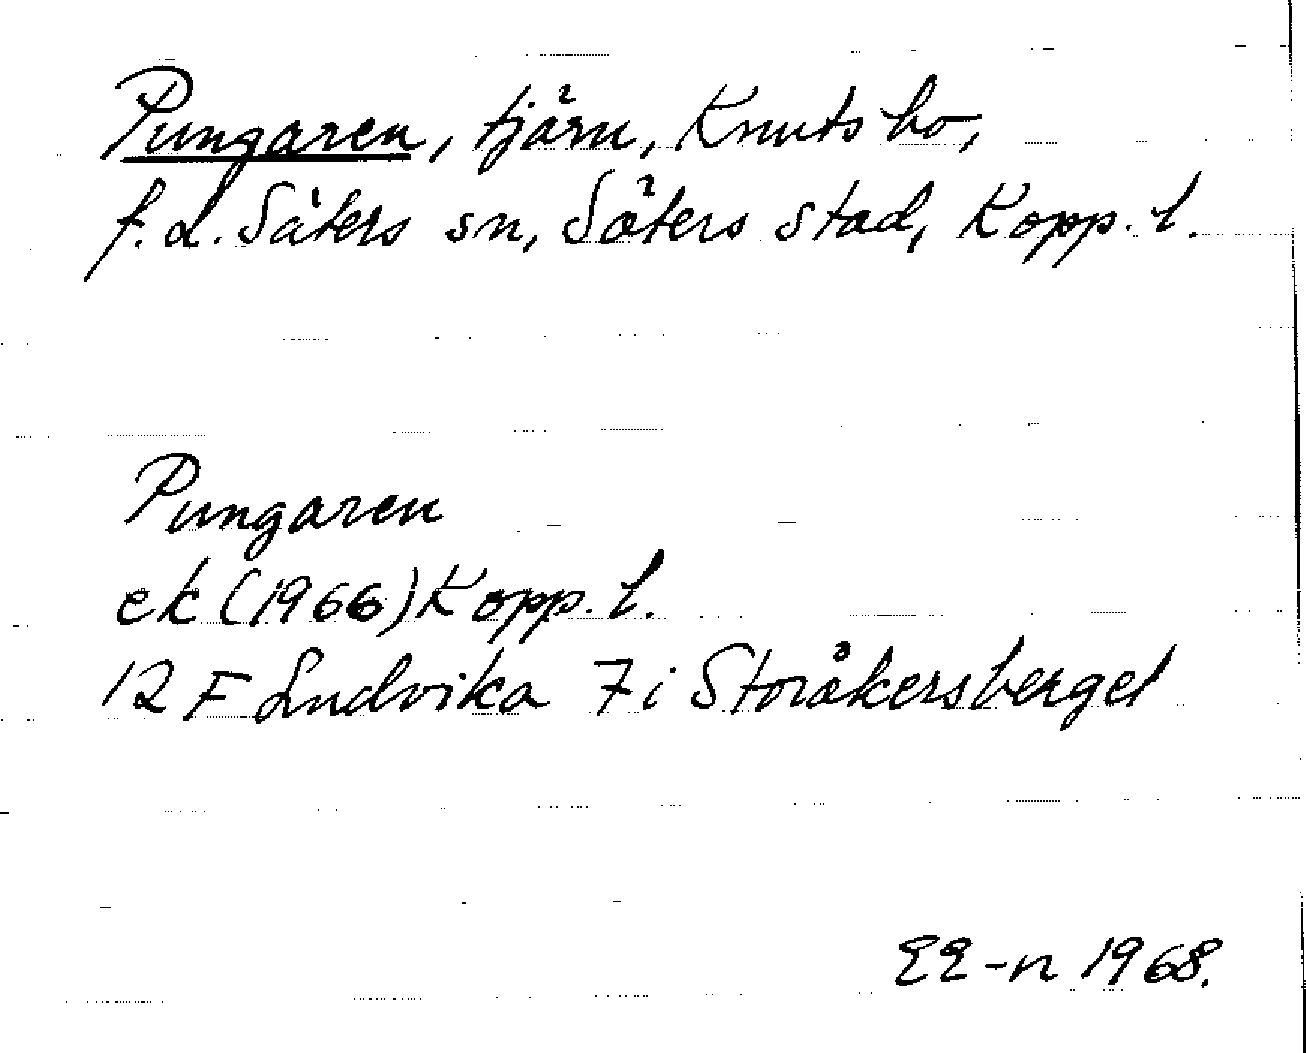 Pungaren, tjärn, Knutsbo,
f.d. Säters sn, Säters stad, Kopp. l.
Pungaren
ek (1966) Kopp. l.
12 F Ludvika 7i Storåkersberget
EE-n 1968.